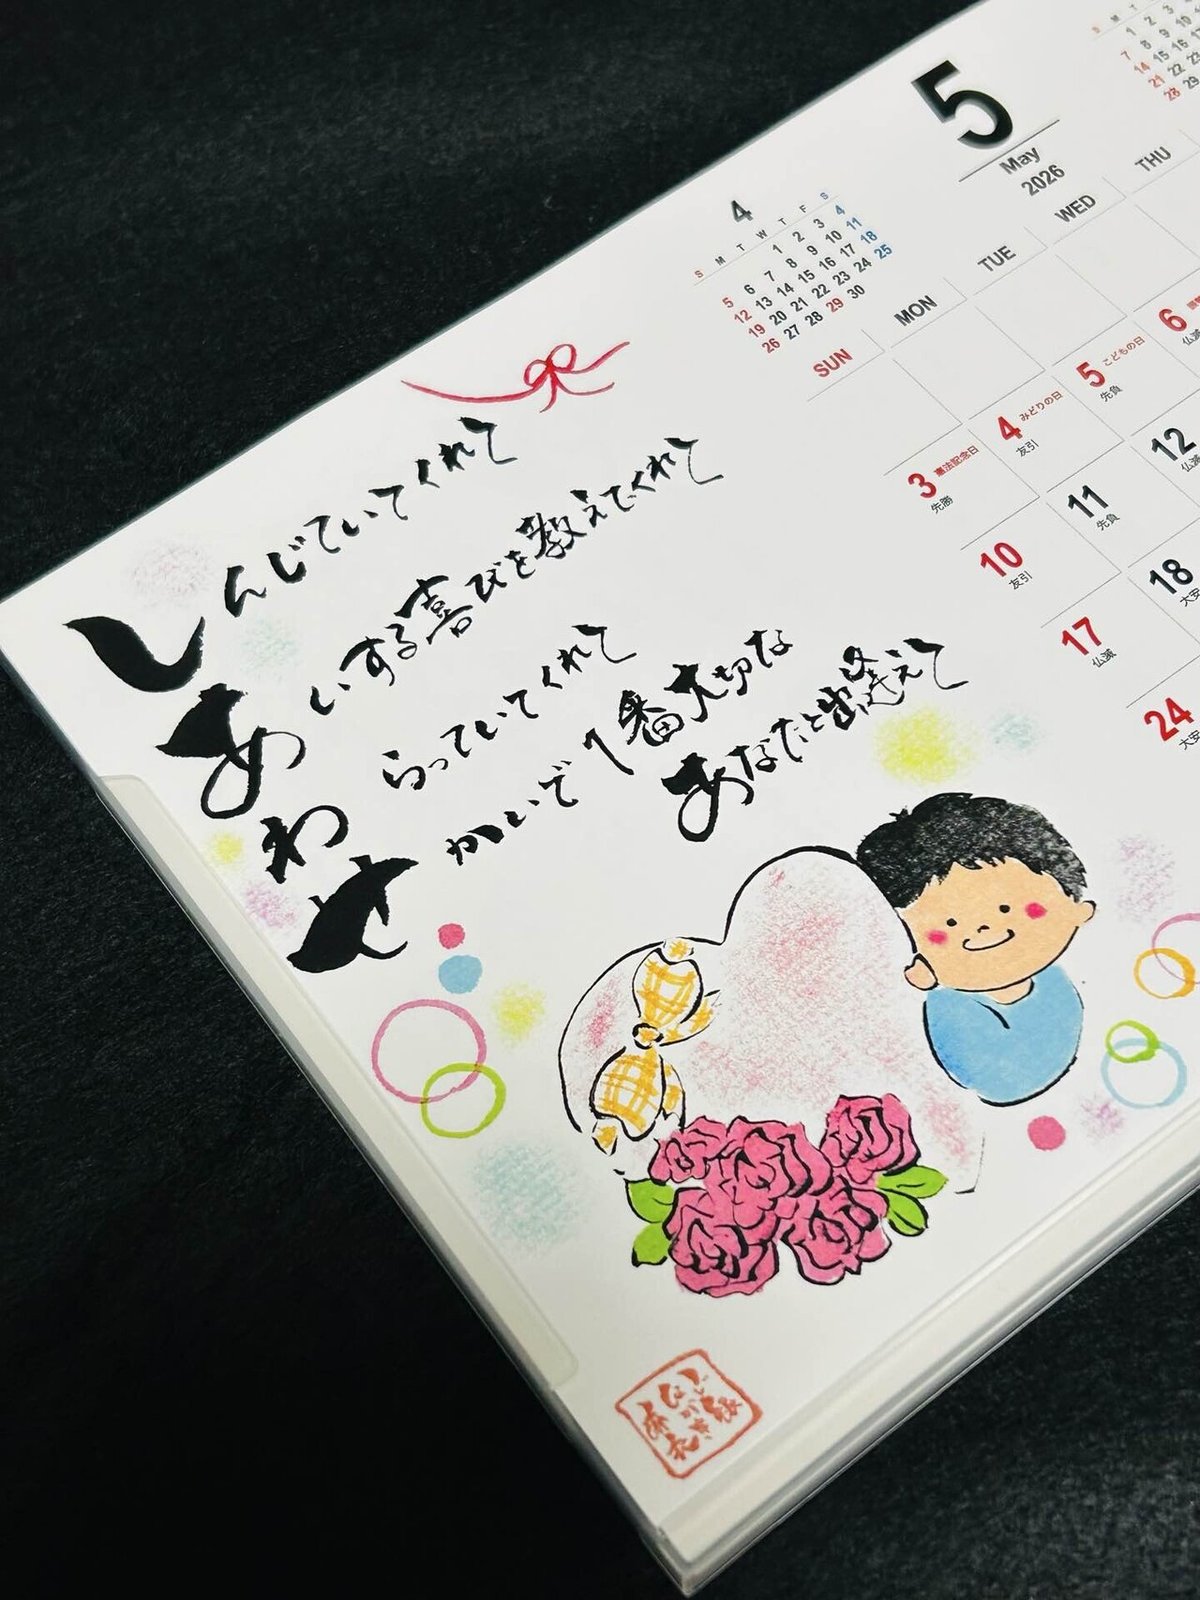 しんじていてくれて
あいする喜びを教えてくれて
わらっていてくれて
せかいで1番大切な
あなたと出逢えて
4
S M T W T F S
1 2 3 4
5 6 7 8 9 10 11
12 13 14 15 16 17 18
19 20 21 22 23 24 25
26 27 28 29 30
5
May
2026
SUN MON TUE WED THU
3 憲法記念日 先勝
4 みどりの日 友引
5 こどもの日 先負
6 仏滅
10 友引
11 先負
12 仏滅
17 仏滅
18 大安
24 大安